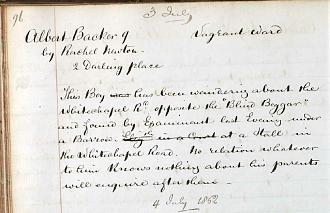 96
3 July
Albert Backer 9 Vagrant Ward
by Rachel Newton
2 Darling place
This Boy was has been wandering about the
Whitechapel Rd opposite the "Blind Beggar"
and found by Examinant last Evening under
a Barrow in a Court at a Stall in
the Whitechapel Road. No relation whatever
to him Knows nothing about his parents
will enquire after them.
4 July 1862